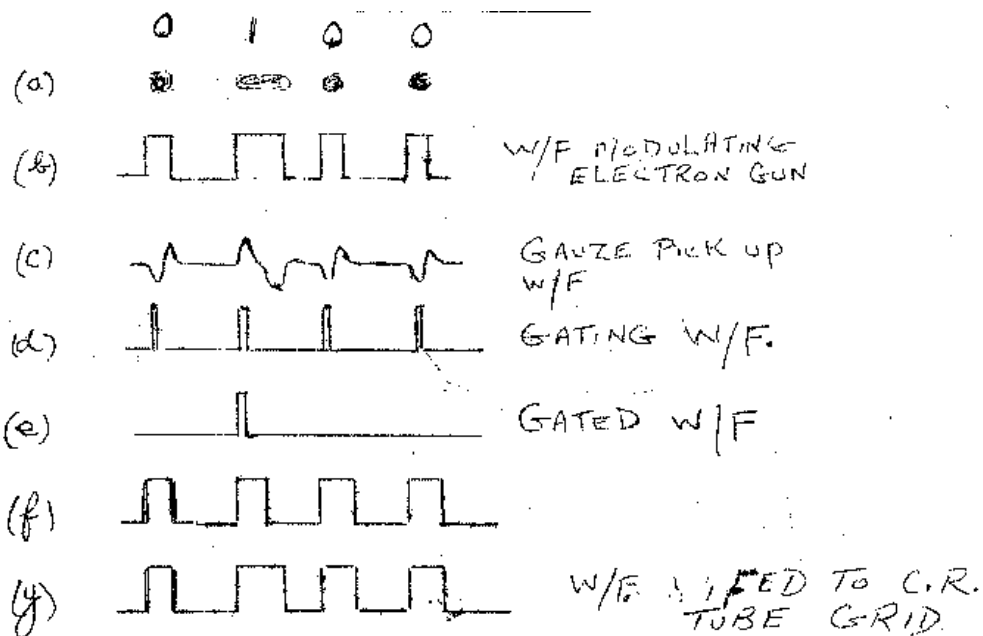 0 1 0 0
(a)
(b) W/F MODULATING
ELECTRON GUN
(c) GAUZE PICK UP
W/F
(d) GATING W/F.
(e) GATED W/F
(f)
(g) W/F. FED TO C.R.
TUBE GRID